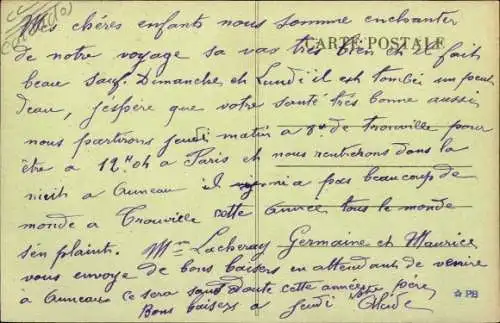 Mes chéres enfants nous somme enchanter
CARTE POSTALE
de notre voyage sa vas très bien et il fait
beau sauf Dimanche et Lundi il est tombé un peut
d'eau, j'espére que votre santé très bonne aussi
nous partirons jeudi matin a 8h de Trouville pour
être a 12H04 a Paris et nous rentrerons dans la
nuit a Auneau il y a pas beaucoup de
monde a Trouville cette année tous le monde
s'en plaint. Mme Lacheray Germaine et Maurice
vous envoye de bons baisers en attendant de venire
à Auneau ce sera sans doute cette année
Bons baisers a jeudi votre père
PB